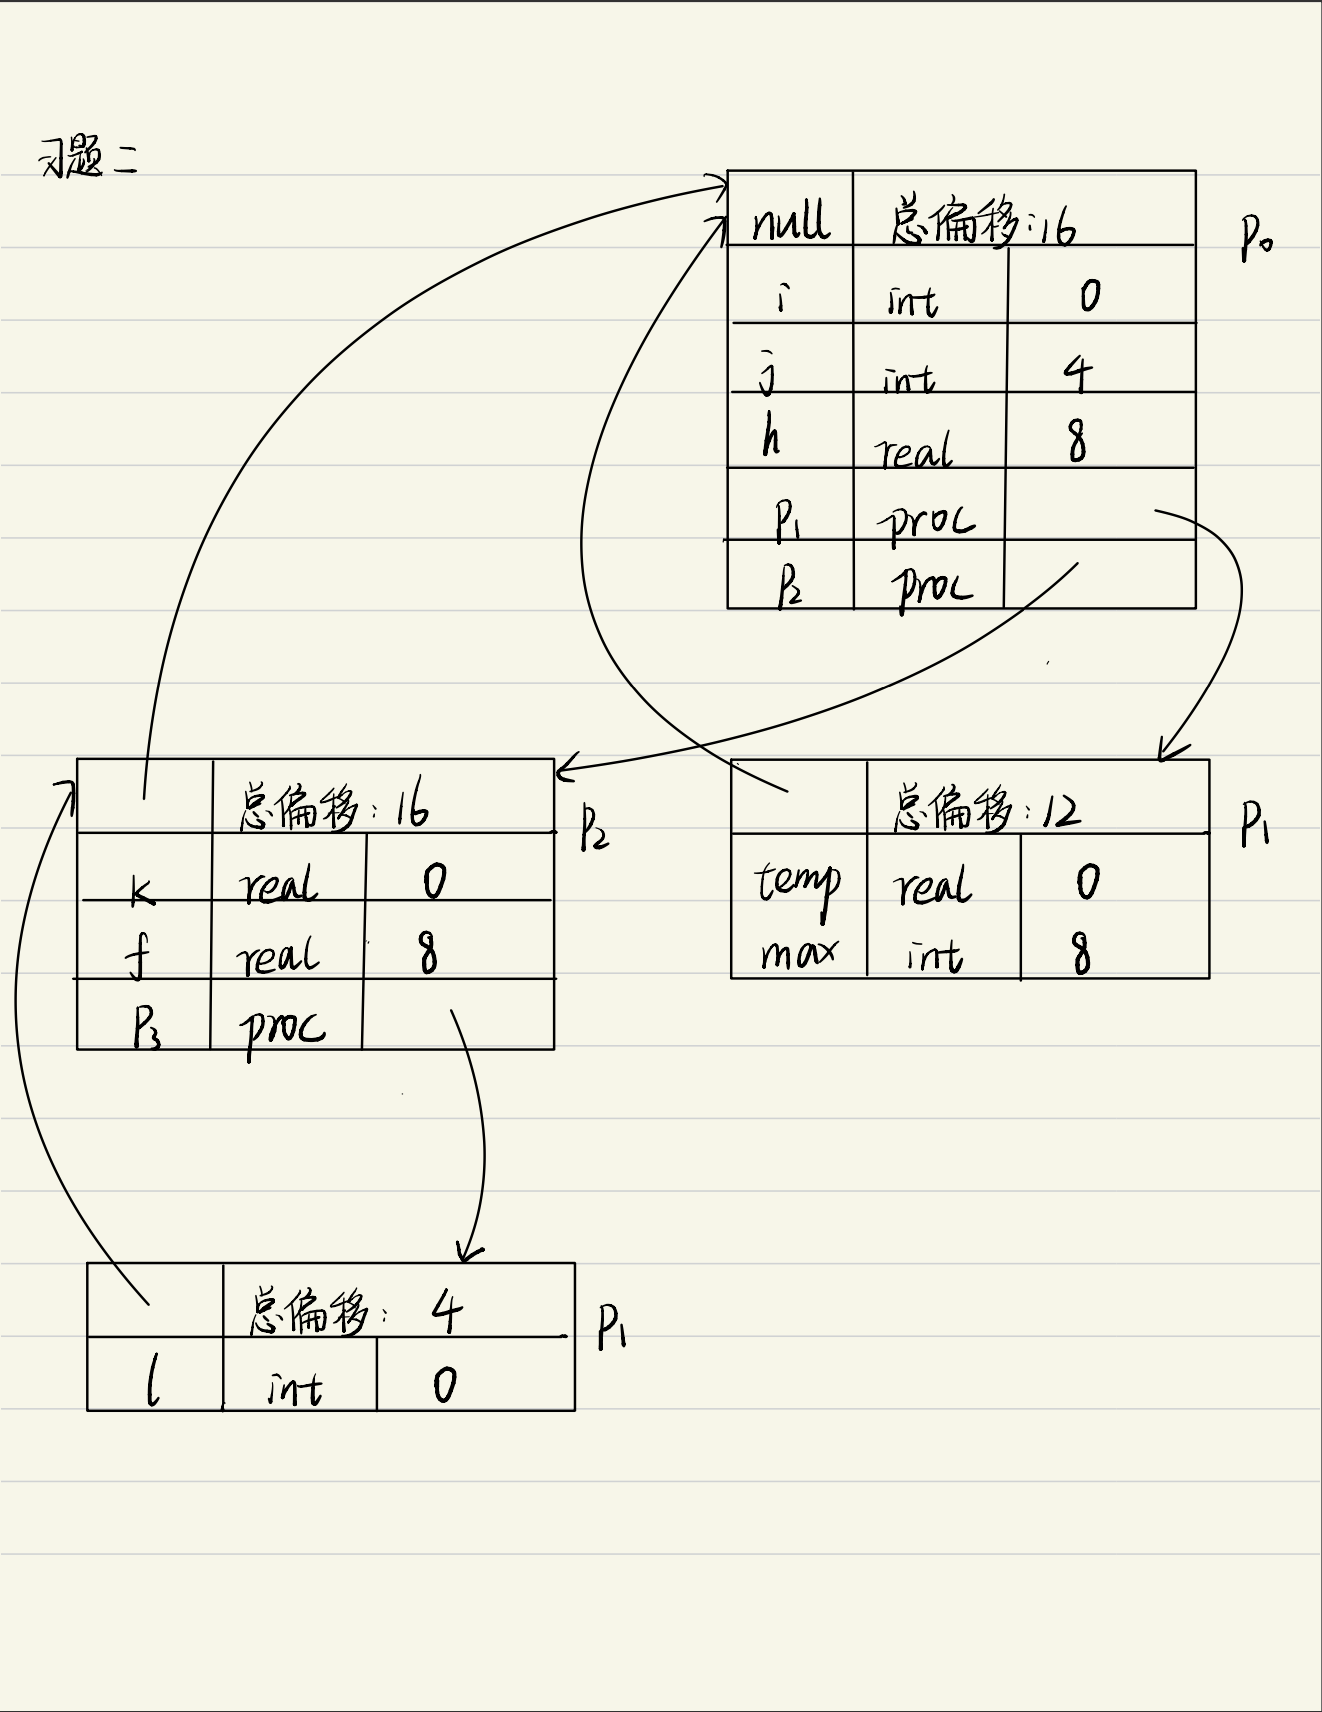 习题二
null 总偏移:16 P0
i int 0
j int 4
h real 8
P1 proc
P2 proc
总偏移:16 P2
k real 0
f real 8
P3 proc
总偏移:12 P1
temp real 0
max int 8
总偏移: 4 P1
l int 0